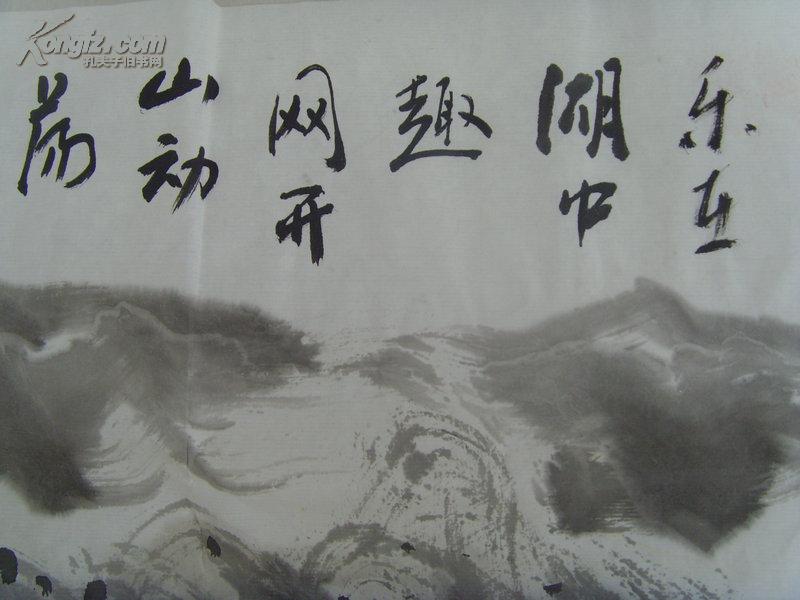 乐在
湖中
趣
网开
山动
荡
Kongfz.com
孔夫子旧书网